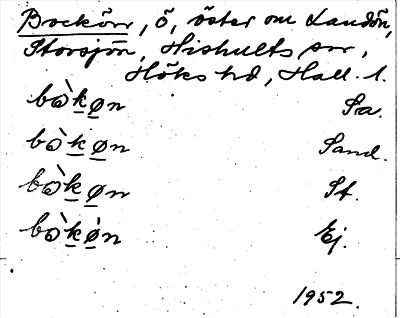 Bockön, ö, öster om Landön,
Storsjön, Hishults sn,
Höks hd, Hall. l.
bò̀køn Sa.
bò̀køn Sand.
bò̀køn St.
bò̀kø̀n Ej.
1952.